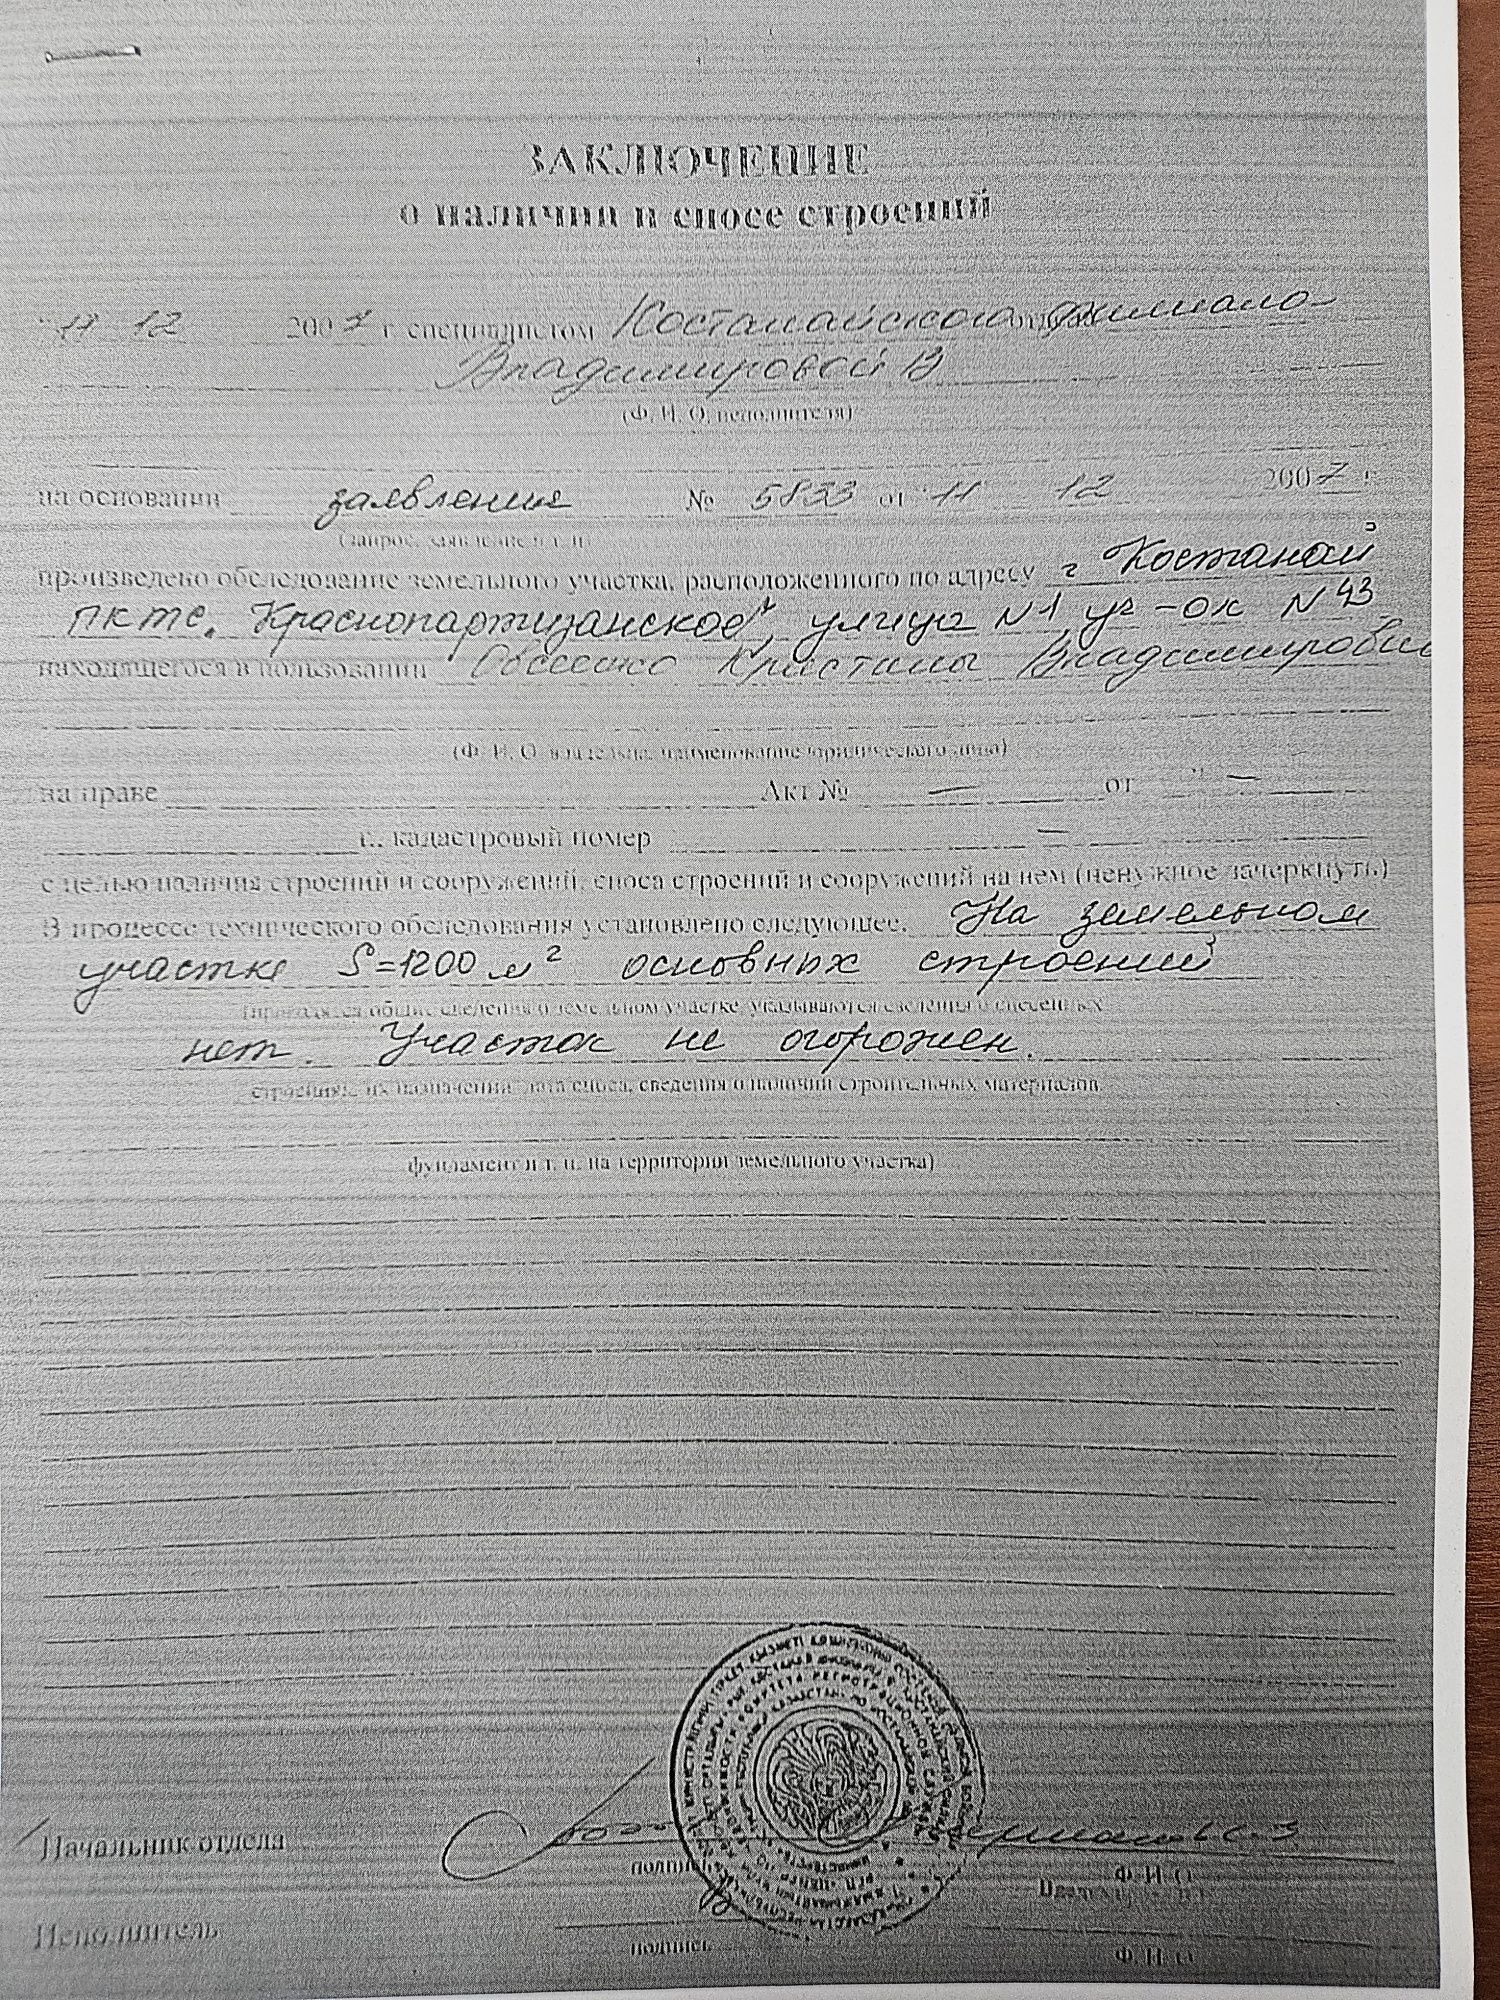 ЗАКЛЮЧЕНИЕ
о наличии и сносе строений
" 11 12 2007 г. специалистом Костанайского филиала
Владимировой В
(Ф. И. О. исполнителя)
на основании заявления № 5833 от " 11 12 2007 г.
(запрос, заявление и т. п)
произведено обследование земельного участка, расположенного по адресу г Костанай
ПКТС. Краснопартизанское, улица N1 уч-ок N 43
находящегося в пользовании Кристины Владимировны
(Ф. И. О. владельца, наименование юридического лица)
на праве Акт № — от " —
г., кадастровый номер —
с целью наличия строений и сооружений, сноса строений и сооружений на нем (ненужное зачеркнуть.)
В процессе технического обследования установлено следующее. На земельном
участке S=1200 м² основных строений
(приводятся общие сведения о земельном участке, указываются сведения о снесенных
нет. Участок не огорожен.
строениях, их назначении, дата сноса, сведения о наличии строительных материалов,
фундамент и т. п. на территории земельного участка)
Начальник отдела
подпись Ф. И. О
Исполнитель
подпись Ф. И. О